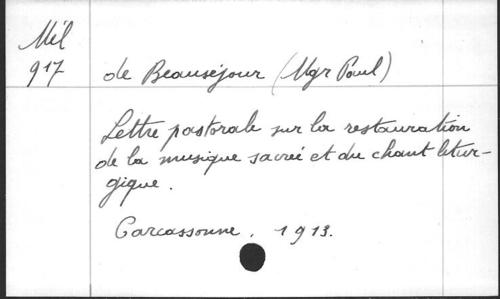 Mél
917
de Beauséjour (Mgr Paul)
Lettre pastorale sur la restauration
de la musique sacrée et du chant litur-
gique.
Carcassonne. 1913.